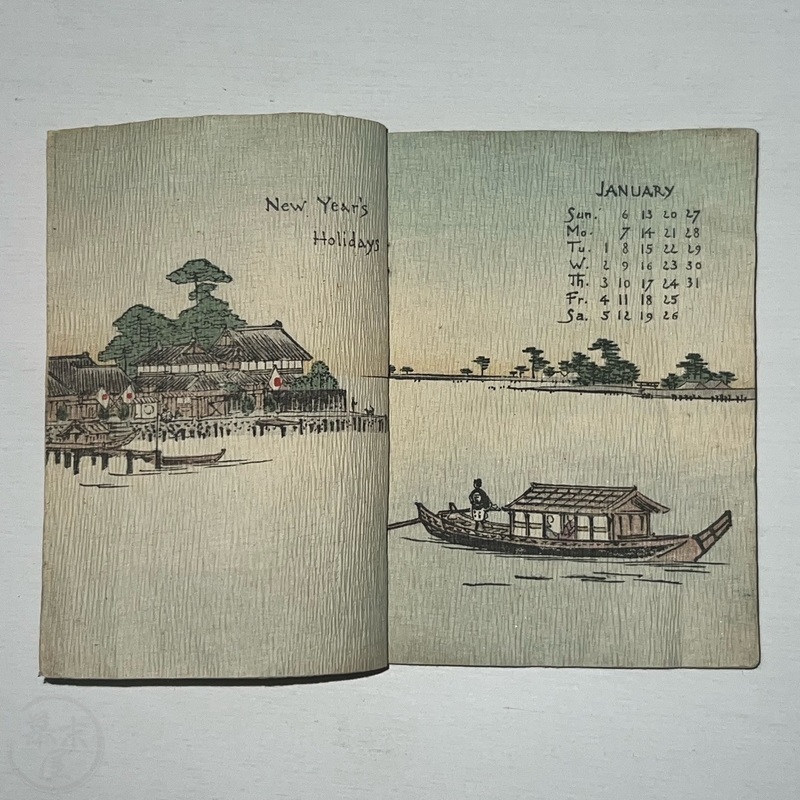 New Year's
Holidays
JANUARY
Sun. 6 13 20 27
Mo. 7 14 21 28
Tu. 1 8 15 22 29
W. 2 9 16 23 30
Th. 3 10 17 24 31
Fr. 4 11 18 25
Sa. 5 12 19 26
幕末屋